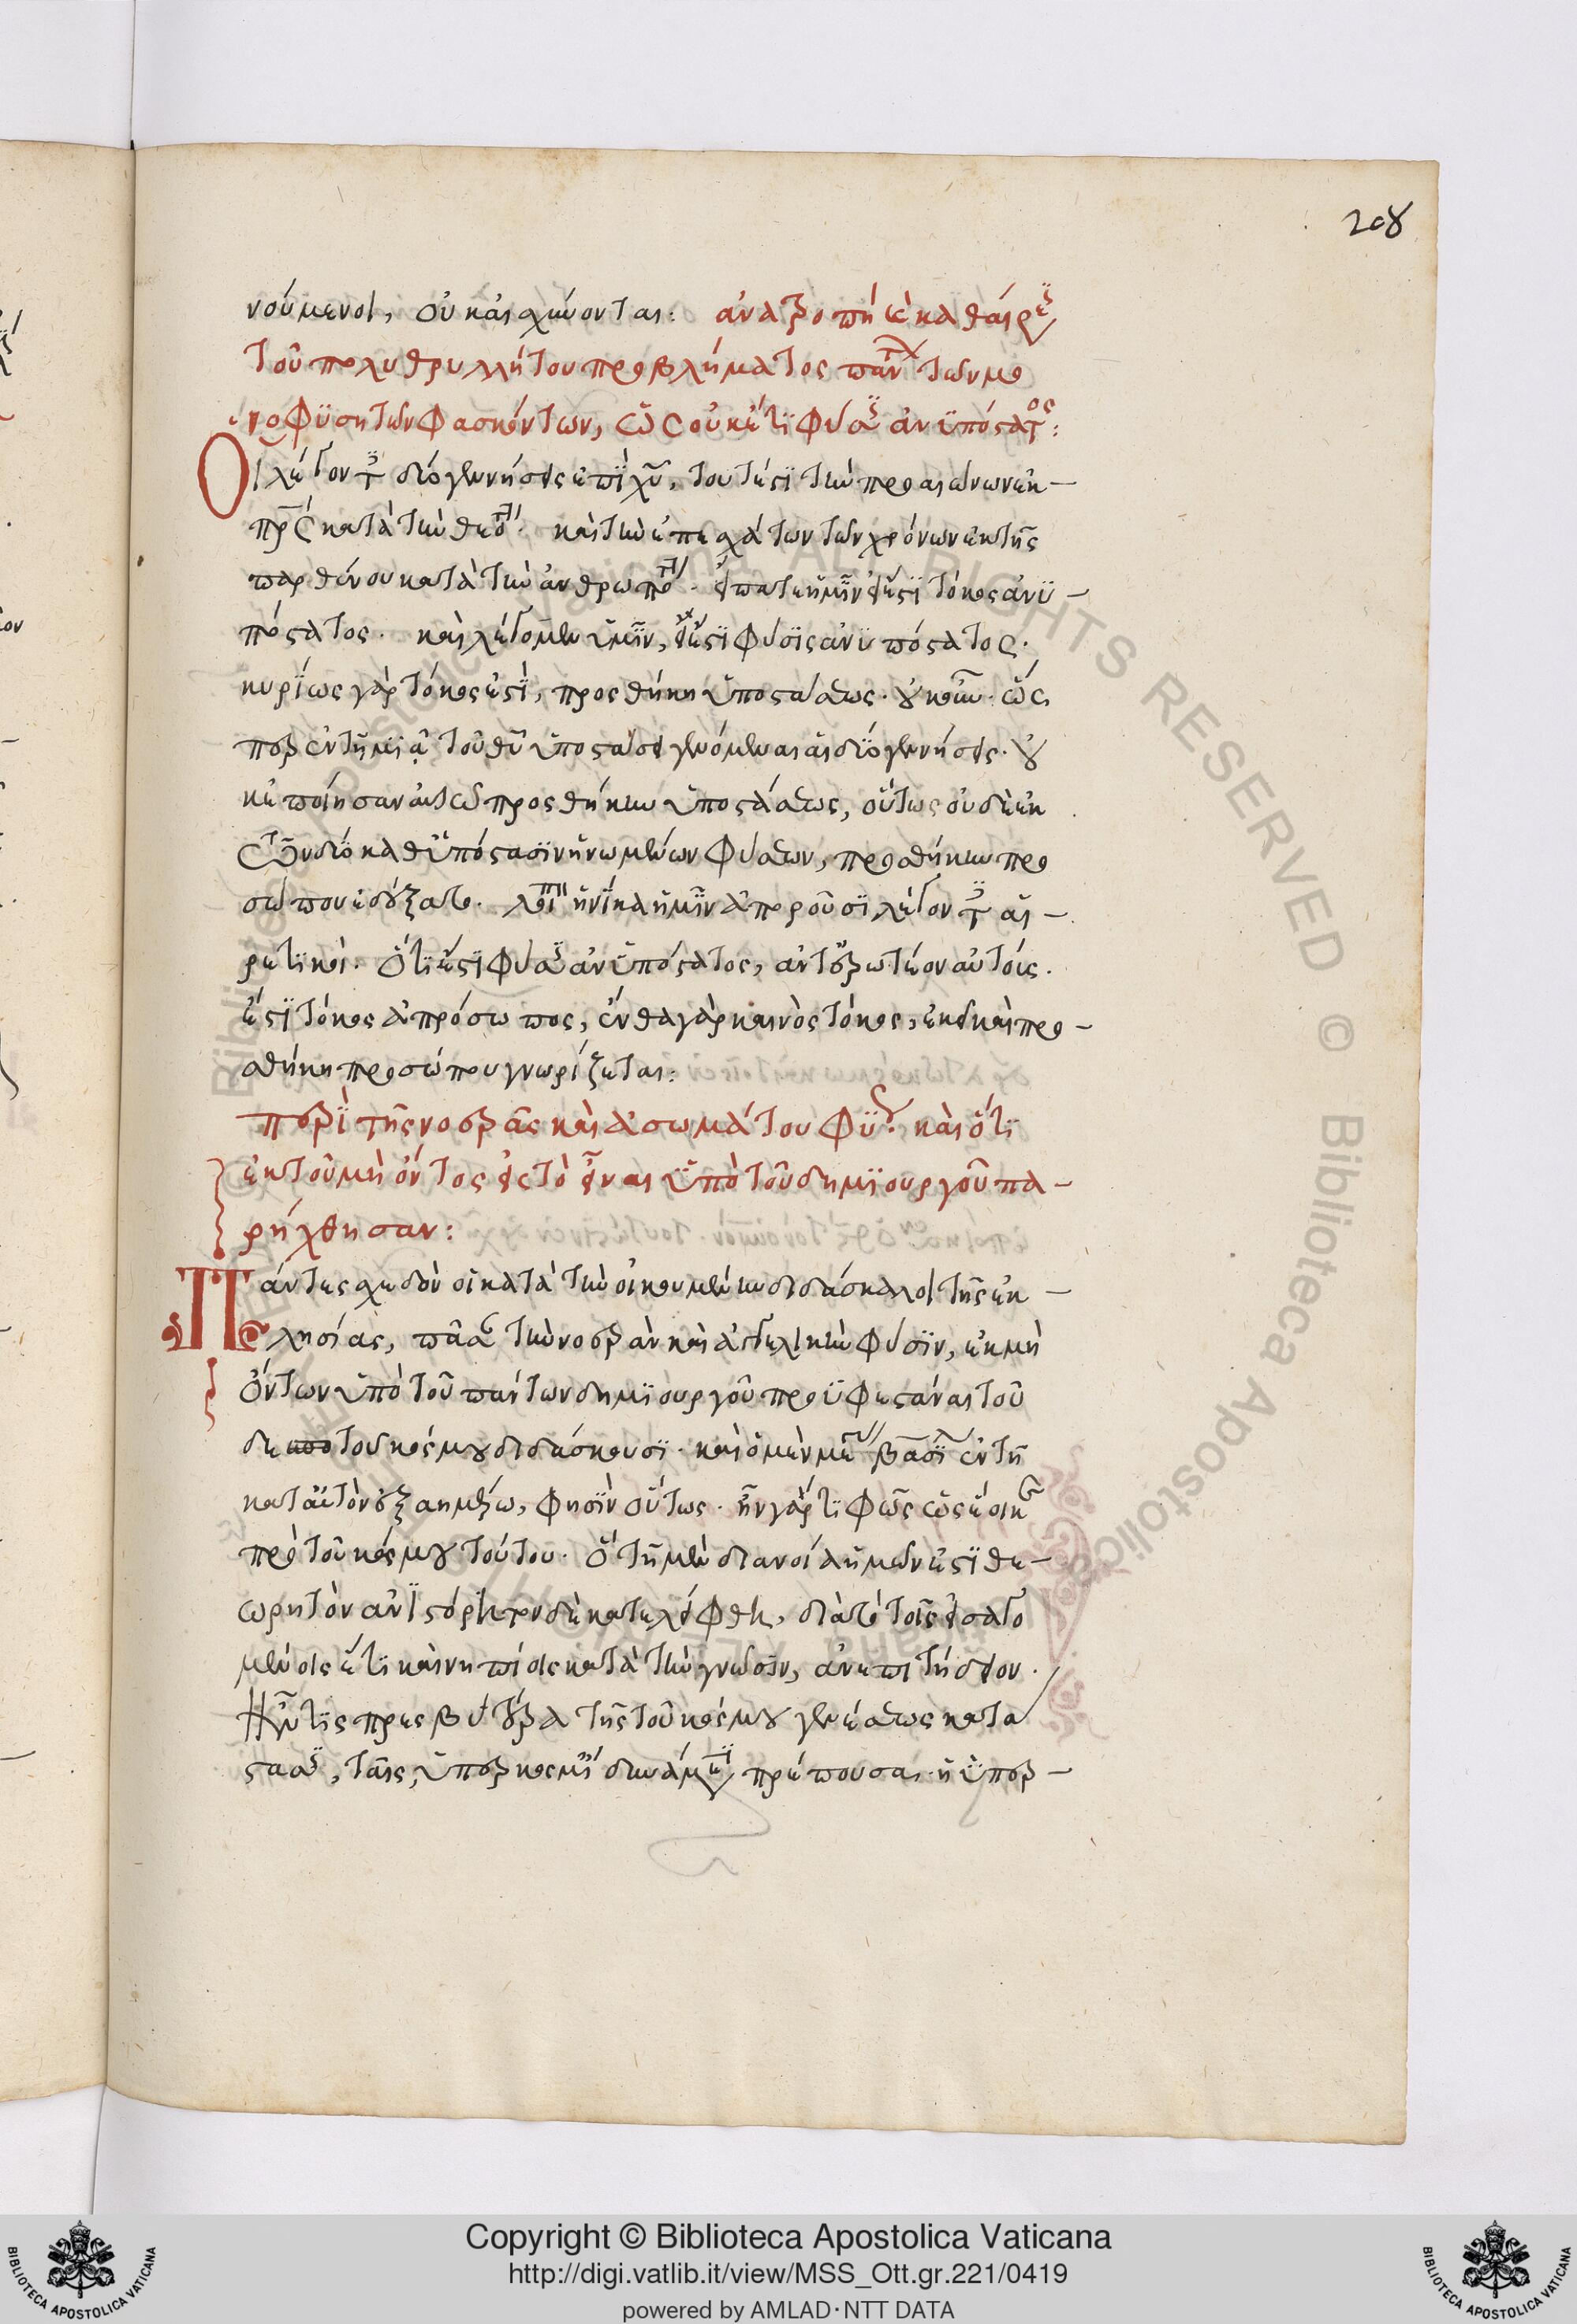 208
νούμενοι, οὐκ αἰσχύνονται. ἀνατροπὴ καὶ καθαίρεσις
τοῦ πολυθρυλλήτου προβλήματος παρὰ τῶν μο
νοφϋσητῶν φασκόντων, ὡς οὐκ ἔτϊ φύσις ἀνϋπόστατος:
Οἱ λέγοντες δύο γεννήσεις ἐπὶ χυ, τουτέστϊ τὴν προ αἰώνων ἐκ
πρς κατὰ τὴν θεότητα. καὶ τὴν ἐπ' ἐσχάτων τῶν χρόνων ἐκ τῆς
παρθένου κατὰ τὴν ἀνθρωπότητα. εἴπατε ἡμῖν εἰ ἔστϊ τόκος ἀνϋ
πόστατος. καὶ λέγομεν ὑμῖν, εἰ ἔστϊ φύσϊς ἀνϋπόστατος.
κυρίως γὰρ τόκος ἐστὶ, προσθήκη ὑποστάσεως. οὐκοῦν. ὥσ
περ ἐν τῇ μϊᾷ τοῦ θυ ὑποστάσει γενόμεναι αἱ δύο γεννήσεις. οὐ
κ ἐποίησαν αὐτῷ προσθήκην ὑποστάσεως, οὕτως οὐδὲ ἐκ
τῶν δύο καθ' ὑπόστασϊν ἡνωμένων φύσεων, προσθήκην προ
σώπου ἐδέξατο. λοιπὸν ἡνίκα ἡμῖν ἀπεροῦσϊ λέγοντες αἱ
ρετϊκοὶ. ὅτϊ ἔστϊ φύσις ἀνϋπόστατος, ἀντερωτέον αὐτοῖς.
ἔστϊ τόκος ἀπρόσωπος, ἔνθα γὰρ καινὸς τόκος, ἐκεῖ καὶ προ
σθήκη προσώπου γνωρίζεται:
περὶ τῆς νοερᾶς καὶ ἀσωμάτου φύσεως. καὶ ὅτϊ
ἐκ τοῦ μὴ ὄντος εἰς τὸ εἶναι ὑπὸ τοῦ δημϊουργοῦ πα
ρήχθησαν:
Πάντες σχεδὸν οἱ κατὰ τὴν οἰκουμένην διδάσκαλοι τῆς ἐκ
κλησίας, πᾶσαν τὴν νοερὰν καὶ ἀγγελικὴν φύσϊν, ἐκ μὴ
ὄντων ὑπὸ τοῦ πάντων δημϊουργοῦ προϋφεστάναι τοῦ
δε τοῦ κόσμου διδάσκουσϊ. καὶ ὁ μὲν μέγας βασίλειος ἐν τῇ
κατ' αὐτὸν ἑξαημέρω, φησὶν οὕτως. ἦν γάρ τϊ φῶς ὡς ἔοικε
πρὸ τοῦ κόσμου τούτου. ὃ τῇ μὲν διανοίᾳ ἡμῶν ἐστϊ θε
ωρητὸν ἀνϊστόρητον δὲ κατελείφθη, διὰ τὸ τοῖς εἰσαγο
μένοις ἔτϊ καὶ νηπίοις κατὰ τὴν γνῶσϊν, ἀνεπιτήδειον.
Ἦν τϊς πρεσβυτέρα τῆς τοῦ κόσμου γενέσεως κατά
στασις, ταῖς, ὑπερκοσμίοις δυνάμεσι πρέπουσα. ἡ ὑπερ
Copyright © Biblioteca Apostolica Vaticana
http://digi.vatlib.it/view/MSS_Ott.gr.221/0419
powered by AMLAD·NTT DATA